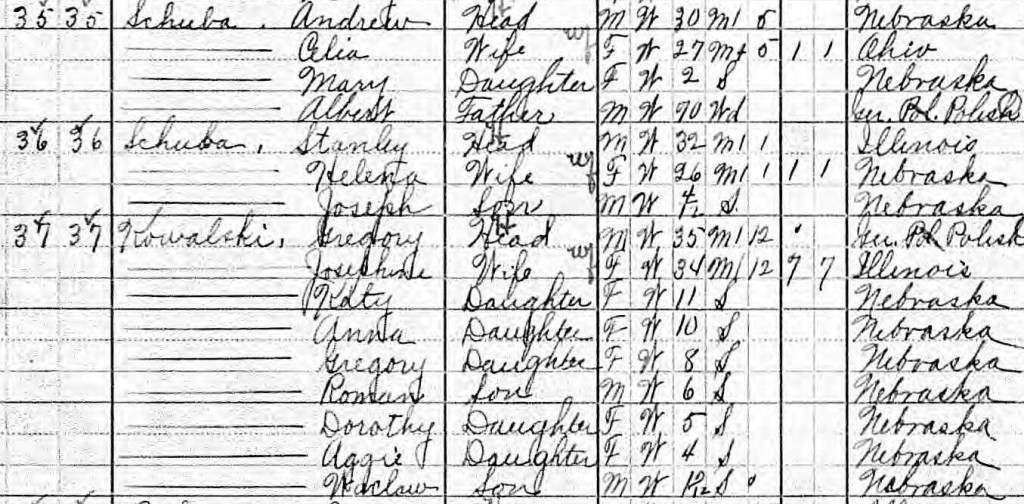 35 35 Schuba, Andrew Head M W 30 M1 5 Nebraska
Celia Wife F W 27 M1 5 1 1 Ohio
Mary Daughter F W 2 S Nebraska
Albert Father M W 90 Wd Ger. Pol. Polish
36 36 Schuba, Stanley Head M W 32 M1 1 Illinois
Helena Wife F W 26 M1 1 1 1 Nebraska
Joseph Son M W 4/12 S Nebraska
37 37 Kowalski, Gregory Head M W 35 M1 12 Ger. Pol Polish
Josephine Wife F W 34 M1 12 7 7 Illinois
Katy Daughter F W 11 S Nebraska
Anna Daughter F W 10 S Nebraska
Gregory Daughter F W 8 S Nebraska
Roman Son M W 6 S Nebraska
Dorothy Daughter F W 5 S Nebraska
Aggie Daughter F W 4 S Nebraska
Waclaw Son M W S Nebraska